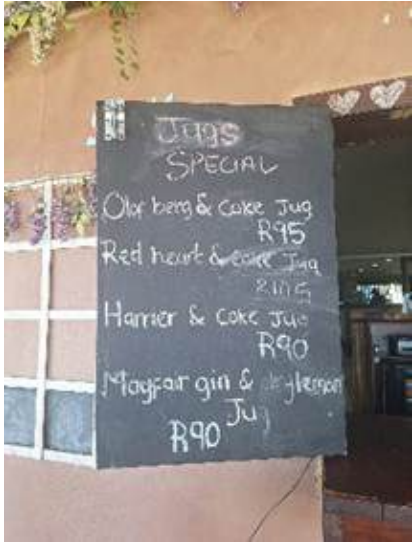 Jugs
SPECIAL
Olof berg & Coke Jug
R95
Red heart & coke Jug
Harrier & Coke Jug
R90
Mayfair gin & drylemon
Jug
R90